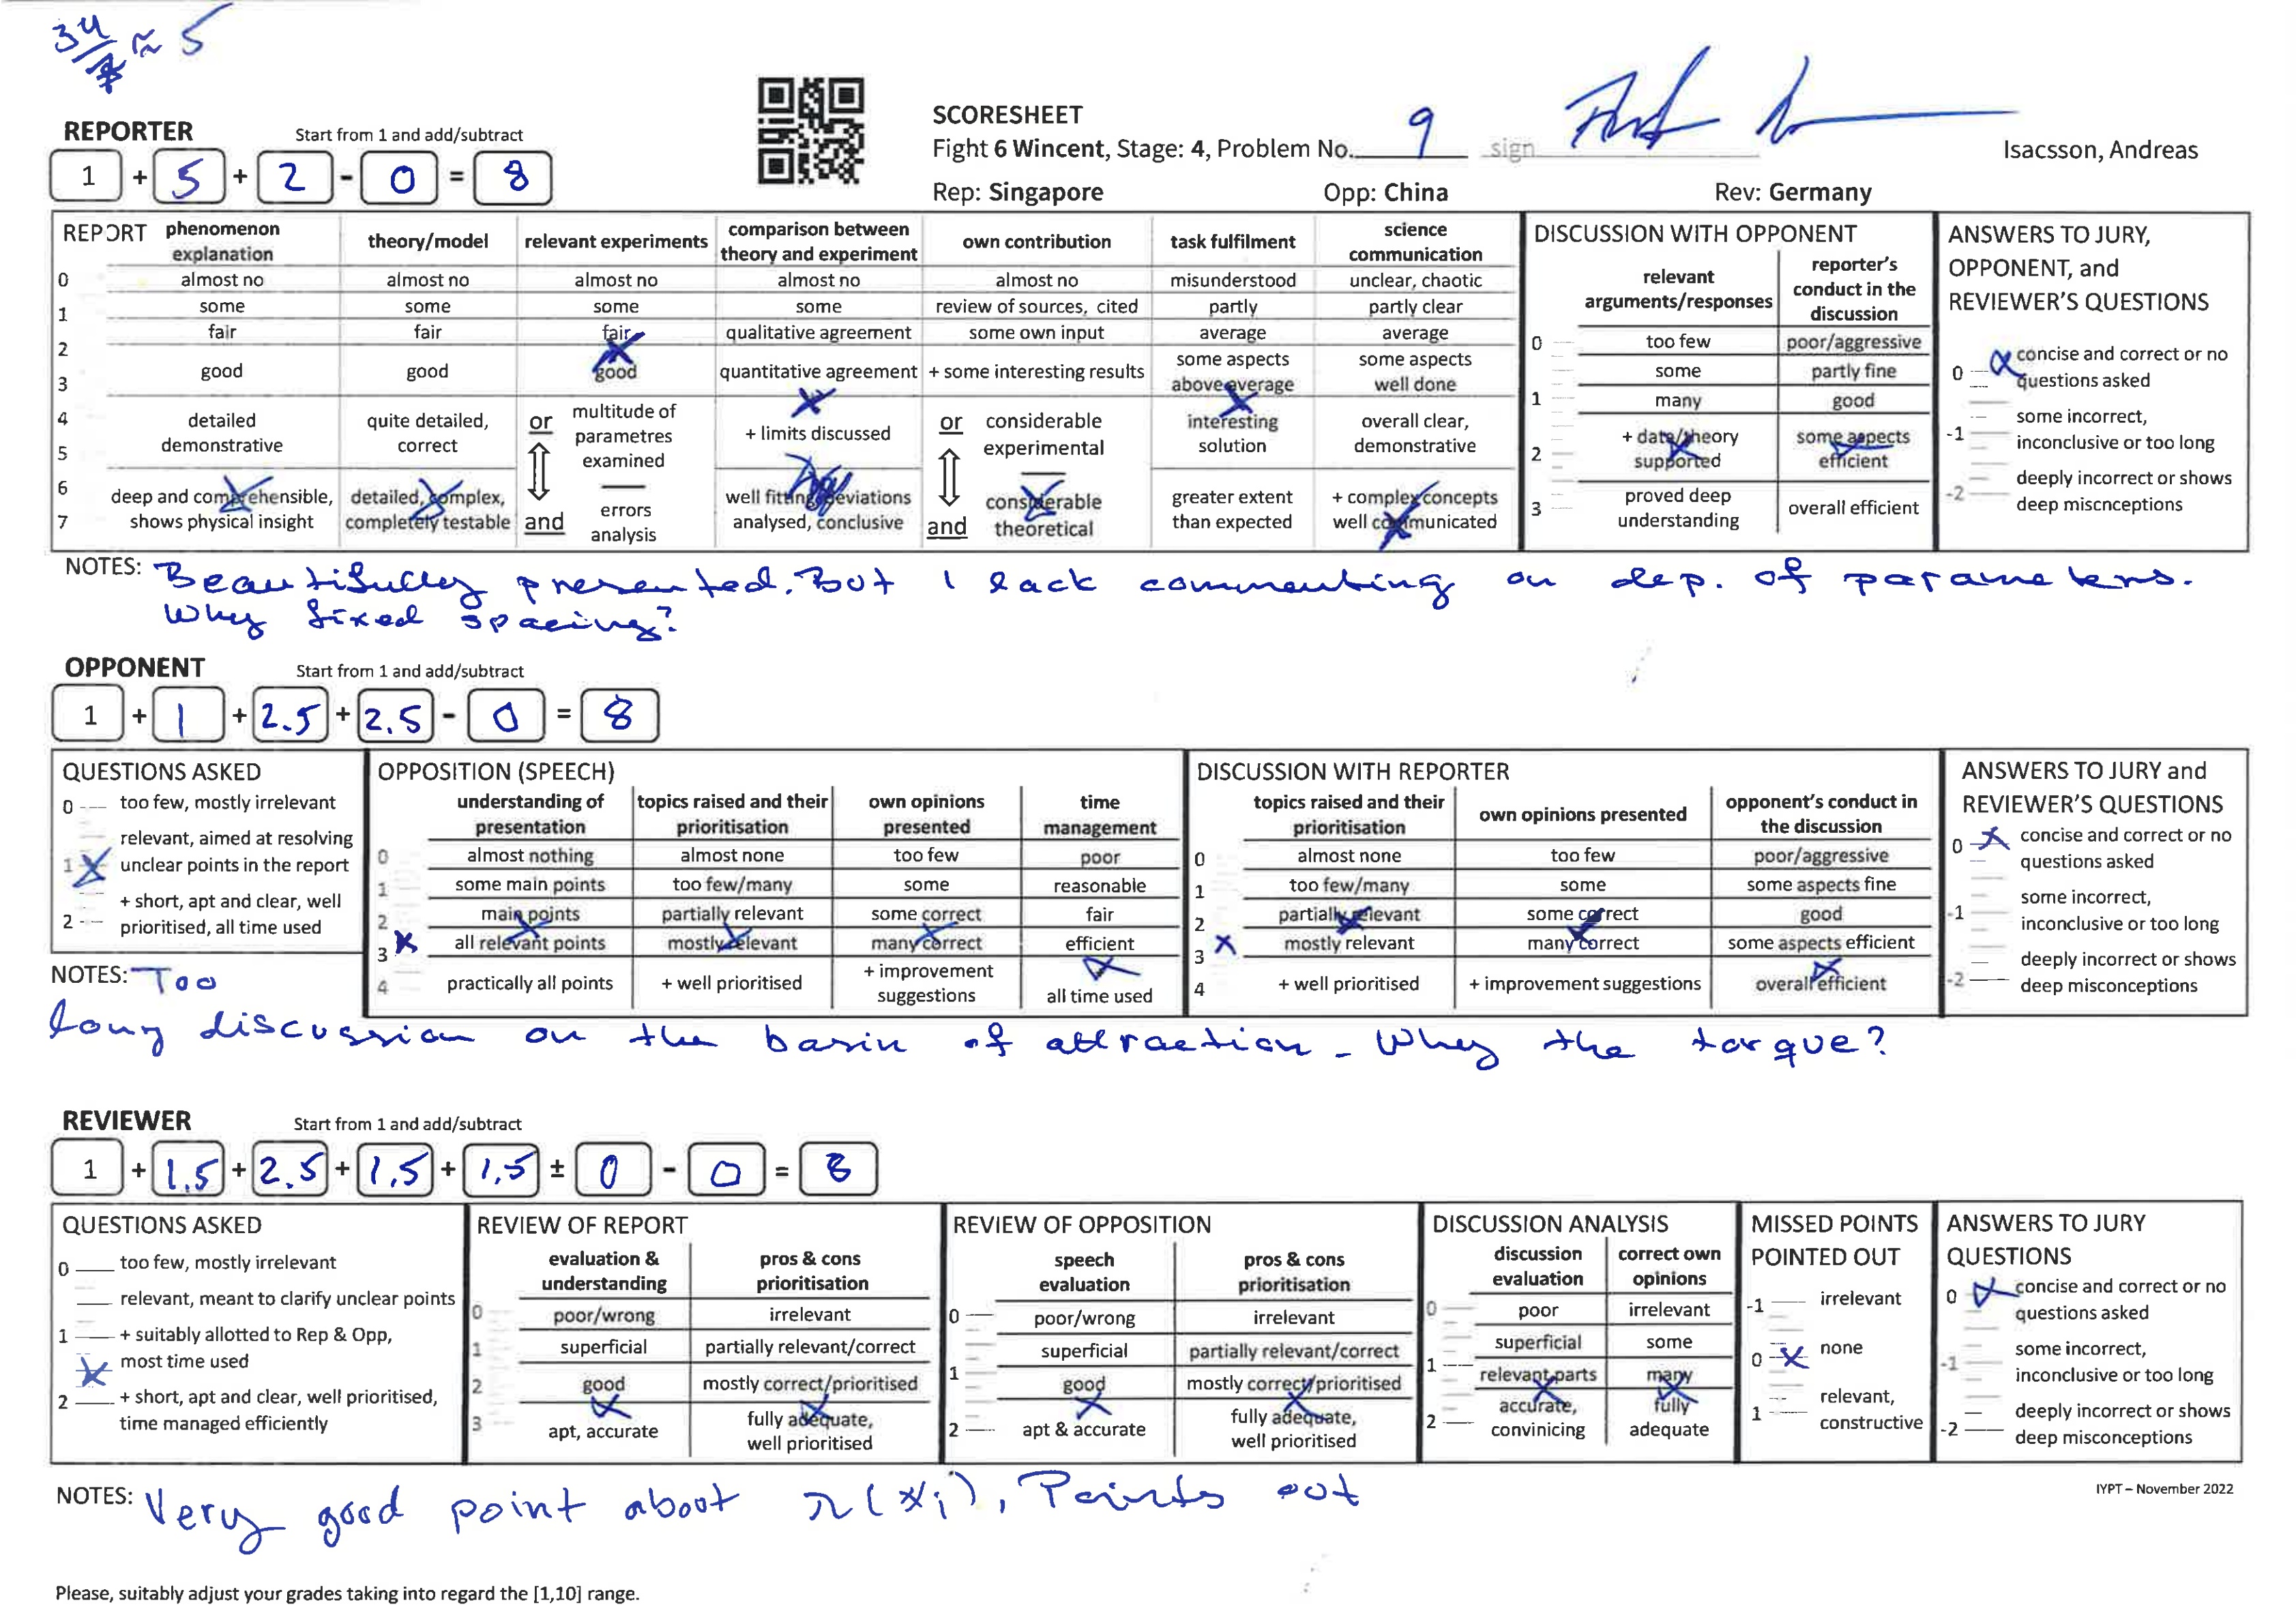 34/7 ≈ 5
SCORESHEET
Fight 6 Wincent, Stage: 4, Problem No. 9 sign
Isacsson, Andreas
Rep: Singapore Opp: China Rev: Germany
REPORTER Start from 1 and add/subtract
1 + 5 + 2 - 0 = 8
REPORT
phenomenon explanation
0 almost no
1 some
2 fair
3 good
4 5 detailed demonstrative
6 7 deep and comprehensible, shows physical insight
theory/model
almost no
some
fair
good
quite detailed, correct
detailed, complex, completely testable
relevant experiments
almost no
some
fair
good
or multitude of parametres examined
and errors analysis
comparison between theory and experiment
almost no
some
qualitative agreement
quantitative agreement
+ limits discussed
well fitting, deviations analysed, conclusive
own contribution
almost no
review of sources, cited
some own input
+ some interesting results
or considerable experimental
and considerable theoretical
task fulfilment
misunderstood
partly
average
some aspects above average
interesting solution
greater extent than expected
science communication
unclear, chaotic
partly clear
average
some aspects well done
overall clear, demonstrative
+ complex concepts well communicated
DISCUSSION WITH OPPONENT
relevant arguments/responses
0 too few
some
1 many
2 + data/theory supported
3 proved deep understanding
reporter's conduct in the discussion
poor/aggressive
partly fine
good
some aspects efficient
overall efficient
ANSWERS TO JURY, OPPONENT, and REVIEWER'S QUESTIONS
0 concise and correct or no questions asked
-1 some incorrect, inconclusive or too long
-2 deeply incorrect or shows deep miscnceptions
NOTES: Beautifully presented. But I lack commenting on dep. of parameters.
Why fixed spacing?
OPPONENT Start from 1 and add/subtract
1 + 1 + 2.5 + 2.5 - 0 = 8
QUESTIONS ASKED
0 too few, mostly irrelevant
1 relevant, aimed at resolving unclear points in the report
2 + short, apt and clear, well prioritised, all time used
OPPOSITION (SPEECH)
understanding of presentation
0 almost nothing
1 some main points
2 main points
3 all relevant points
4 practically all points
topics raised and their prioritisation
almost none
too few/many
partially relevant
mostly relevant
+ well prioritised
own opinions presented
too few
some
some correct
many correct
+ improvement suggestions
time management
poor
reasonable
fair
efficient
all time used
DISCUSSION WITH REPORTER
topics raised and their prioritisation
0 almost none
1 too few/many
2 partially relevant
3 mostly relevant
4 + well prioritised
own opinions presented
too few
some
some correct
many correct
+ improvement suggestions
opponent's conduct in the discussion
poor/aggressive
some aspects fine
good
some aspects efficient
overall efficient
ANSWERS TO JURY and REVIEWER'S QUESTIONS
0 concise and correct or no questions asked
-1 some incorrect, inconclusive or too long
-2 deeply incorrect or shows deep misconceptions
NOTES: Too
long discussion on the basin of attraction - Why the torque?
REVIEWER Start from 1 and add/subtract
1 + 1.5 + 2.5 + 1,5 + 1,5 ± 0 - 0 = 8
QUESTIONS ASKED
0 too few, mostly irrelevant
relevant, meant to clarify unclear points
1 + suitably allotted to Rep & Opp, most time used
2 + short, apt and clear, well prioritised, time managed efficiently
REVIEW OF REPORT
evaluation & understanding
0 poor/wrong
1 superficial
2 good
3 apt, accurate
pros & cons prioritisation
irrelevant
partially relevant/correct
mostly correct/prioritised
fully adequate, well prioritised
REVIEW OF OPPOSITION
speech evaluation
0 poor/wrong
superficial
1
good
2 apt & accurate
pros & cons prioritisation
irrelevant
partially relevant/correct
mostly correct/prioritised
fully adequate, well prioritised
DISCUSSION ANALYSIS
discussion evaluation
0 poor
superficial
1 relevant parts
2 accurate, convinicing
correct own opinions
irrelevant
some
many
fully adequate
MISSED POINTS POINTED OUT
-1 irrelevant
0 none
1 relevant, constructive
ANSWERS TO JURY QUESTIONS
0 concise and correct or no questions asked
-1 some incorrect, inconclusive or too long
-2 deeply incorrect or shows deep misconceptions
NOTES: Very good point about (xi), Points out
IYPT – November 2022
Please, suitably adjust your grades taking into regard the [1,10] range.